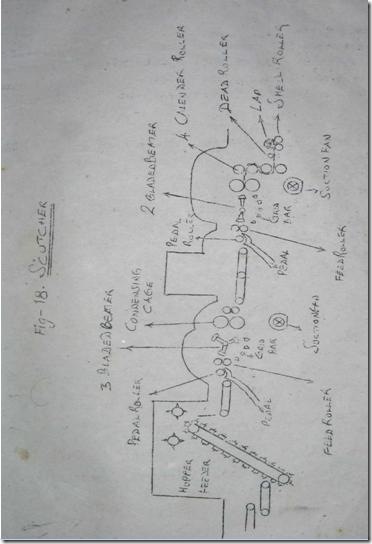 Fig-18. SCUTCHER
3 BLADED BEATER
CONDENSING
CAGE
2 BLADED BEATER
4 CILENDER ROLLER
DEAD ROLLER
LAP
SMELL ROLLER
PEDAL ROLLER
PEDAL
ROLLER
HOPPER
FEEDER
GRID
BAR
GRID
BAR
PEDAL
PEDAL
SUCTION FAN
SUCTION FAN
FEED ROLLER
FEED ROLLER